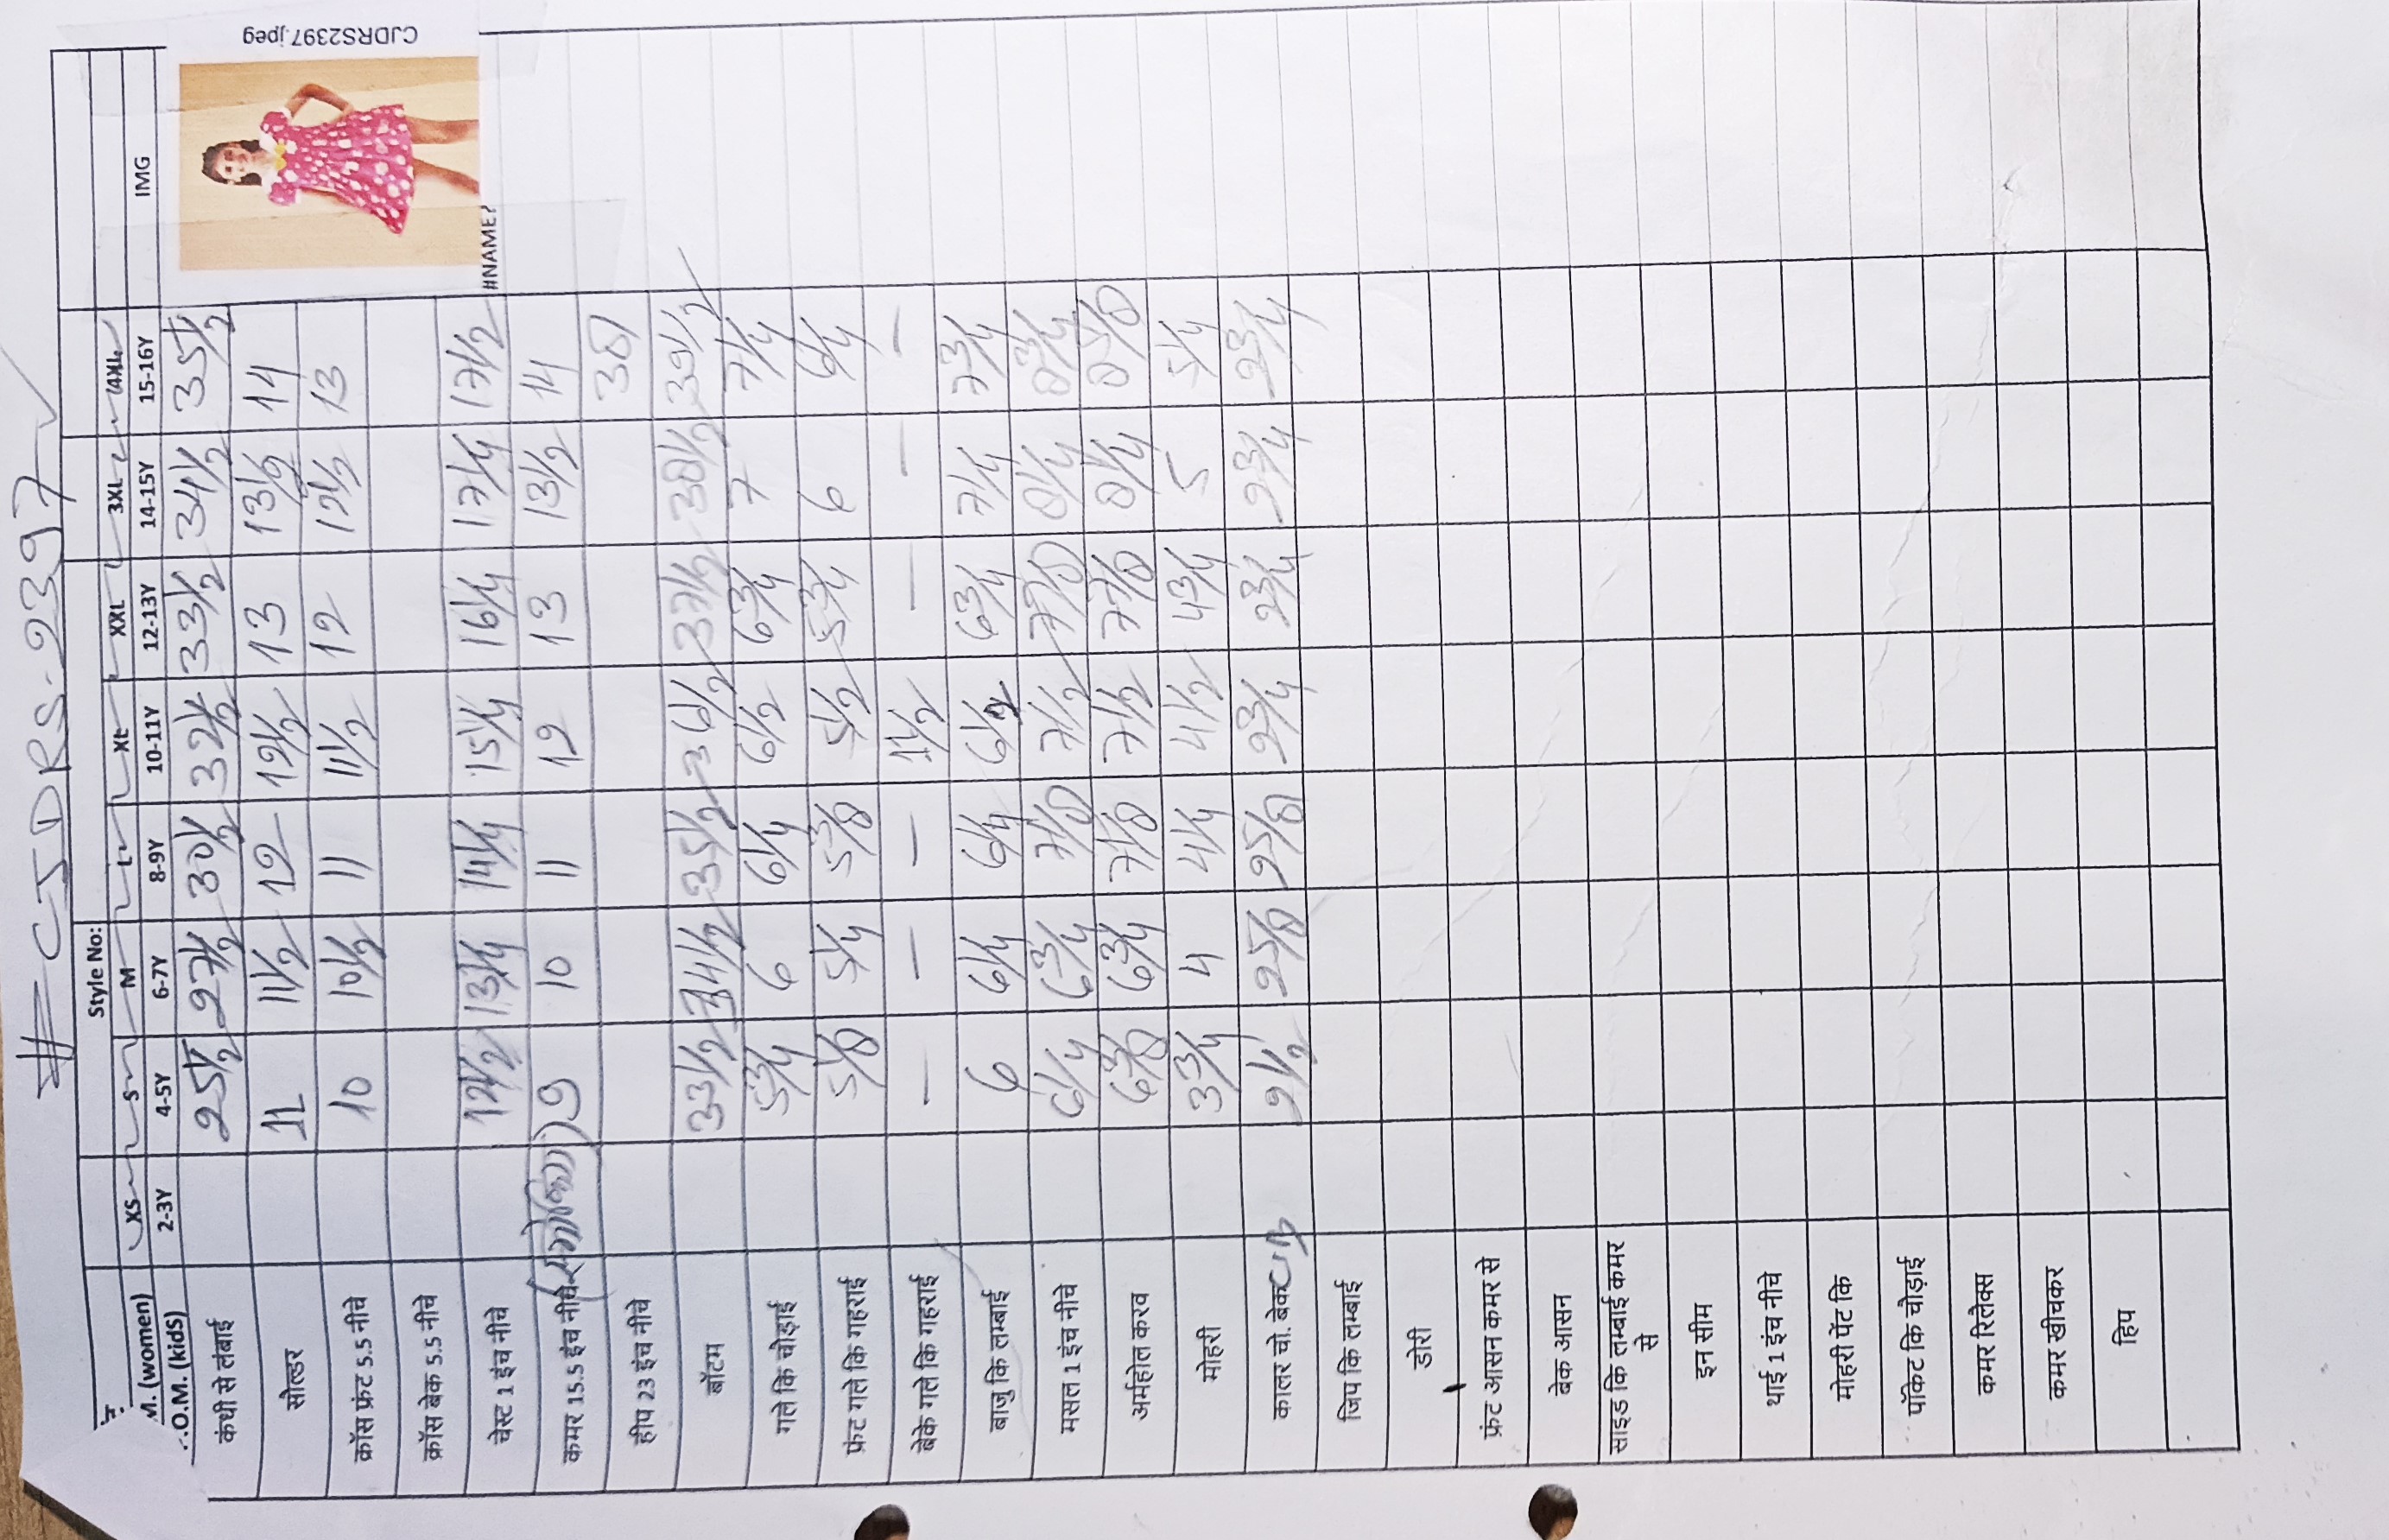 # CJDRS-2397
Style No:
M. (women) XS S M L XL XXL 3XL 4XL
.O.M. (kidS) 2-3Y 4-5Y 6-7Y 8-9Y 10-11Y 12-13Y 14-15Y 15-16Y IMG
कंधी से लंबाई 25 1/2 27 1/2 30 1/2 32 1/2 33 1/2 34 1/2 35 1/2
CJDRS2397.jpeg
सोल्डर 11 11 1/2 12 12 1/2 13 13 1/2 14
क्रॉस फ्रंट 5.5 नीचे 10 10 1/2 11 11 1/2 12 12 1/2 13
क्रॉस बेक 5.5 नीचे
चेस्ट 1 इंच नीचे 12 1/2 13 1/4 14 1/4 15 1/4 16 1/4 17 1/4 17 1/2
#NAME?
कमर 15.5 इंच नीचे 9 10 11 12 13 13 1/2 14
हीप 23 इंच नीचे 38
बॉटम 33 1/2 34 1/2 35 1/2 36 1/2 37 1/2 38 1/2 39 1/2
गले कि चोड़ाई 5 3/4 6 6 1/4 6 1/2 6 3/4 7 7 1/4
फ्रंट गले कि गहराई 5 1/8 5 1/4 5 3/8 5 1/2 5 3/4 6 6 1/4
बेके गले कि गहराई — — — 1 1/2 — — —
बाजु कि लम्बाई 6 6 1/4 6 1/4 6 1/2 6 3/4 7 1/4 7 3/4
मसल 1 इंच नीचे 6 1/4 6 3/4 7 1/8 7 1/2 7 7/8 8 1/4 8 3/4
अर्महोल करव 6 3/8 6 3/4 7 1/8 7 1/2 7 7/8 8 1/4 8 5/8
मोहरी 3 3/4 4 4 1/4 4 1/2 4 3/4 5 5 1/4
कालर चो. बेक 2 1/2 2 5/8 2 5/8 2 3/4 2 3/4 2 3/4 2 3/4
जिप कि लम्बाई
डोरी
फ्रंट आसन कमर से
बेक आसन
साइड कि लम्बाई कमर
से
इन सीम
थाई 1 इंच नीचे
मोहरी पेंट कि
पॉकेट कि चौड़ाई
कमर रिलैक्स
कमर खीचकर
हिप